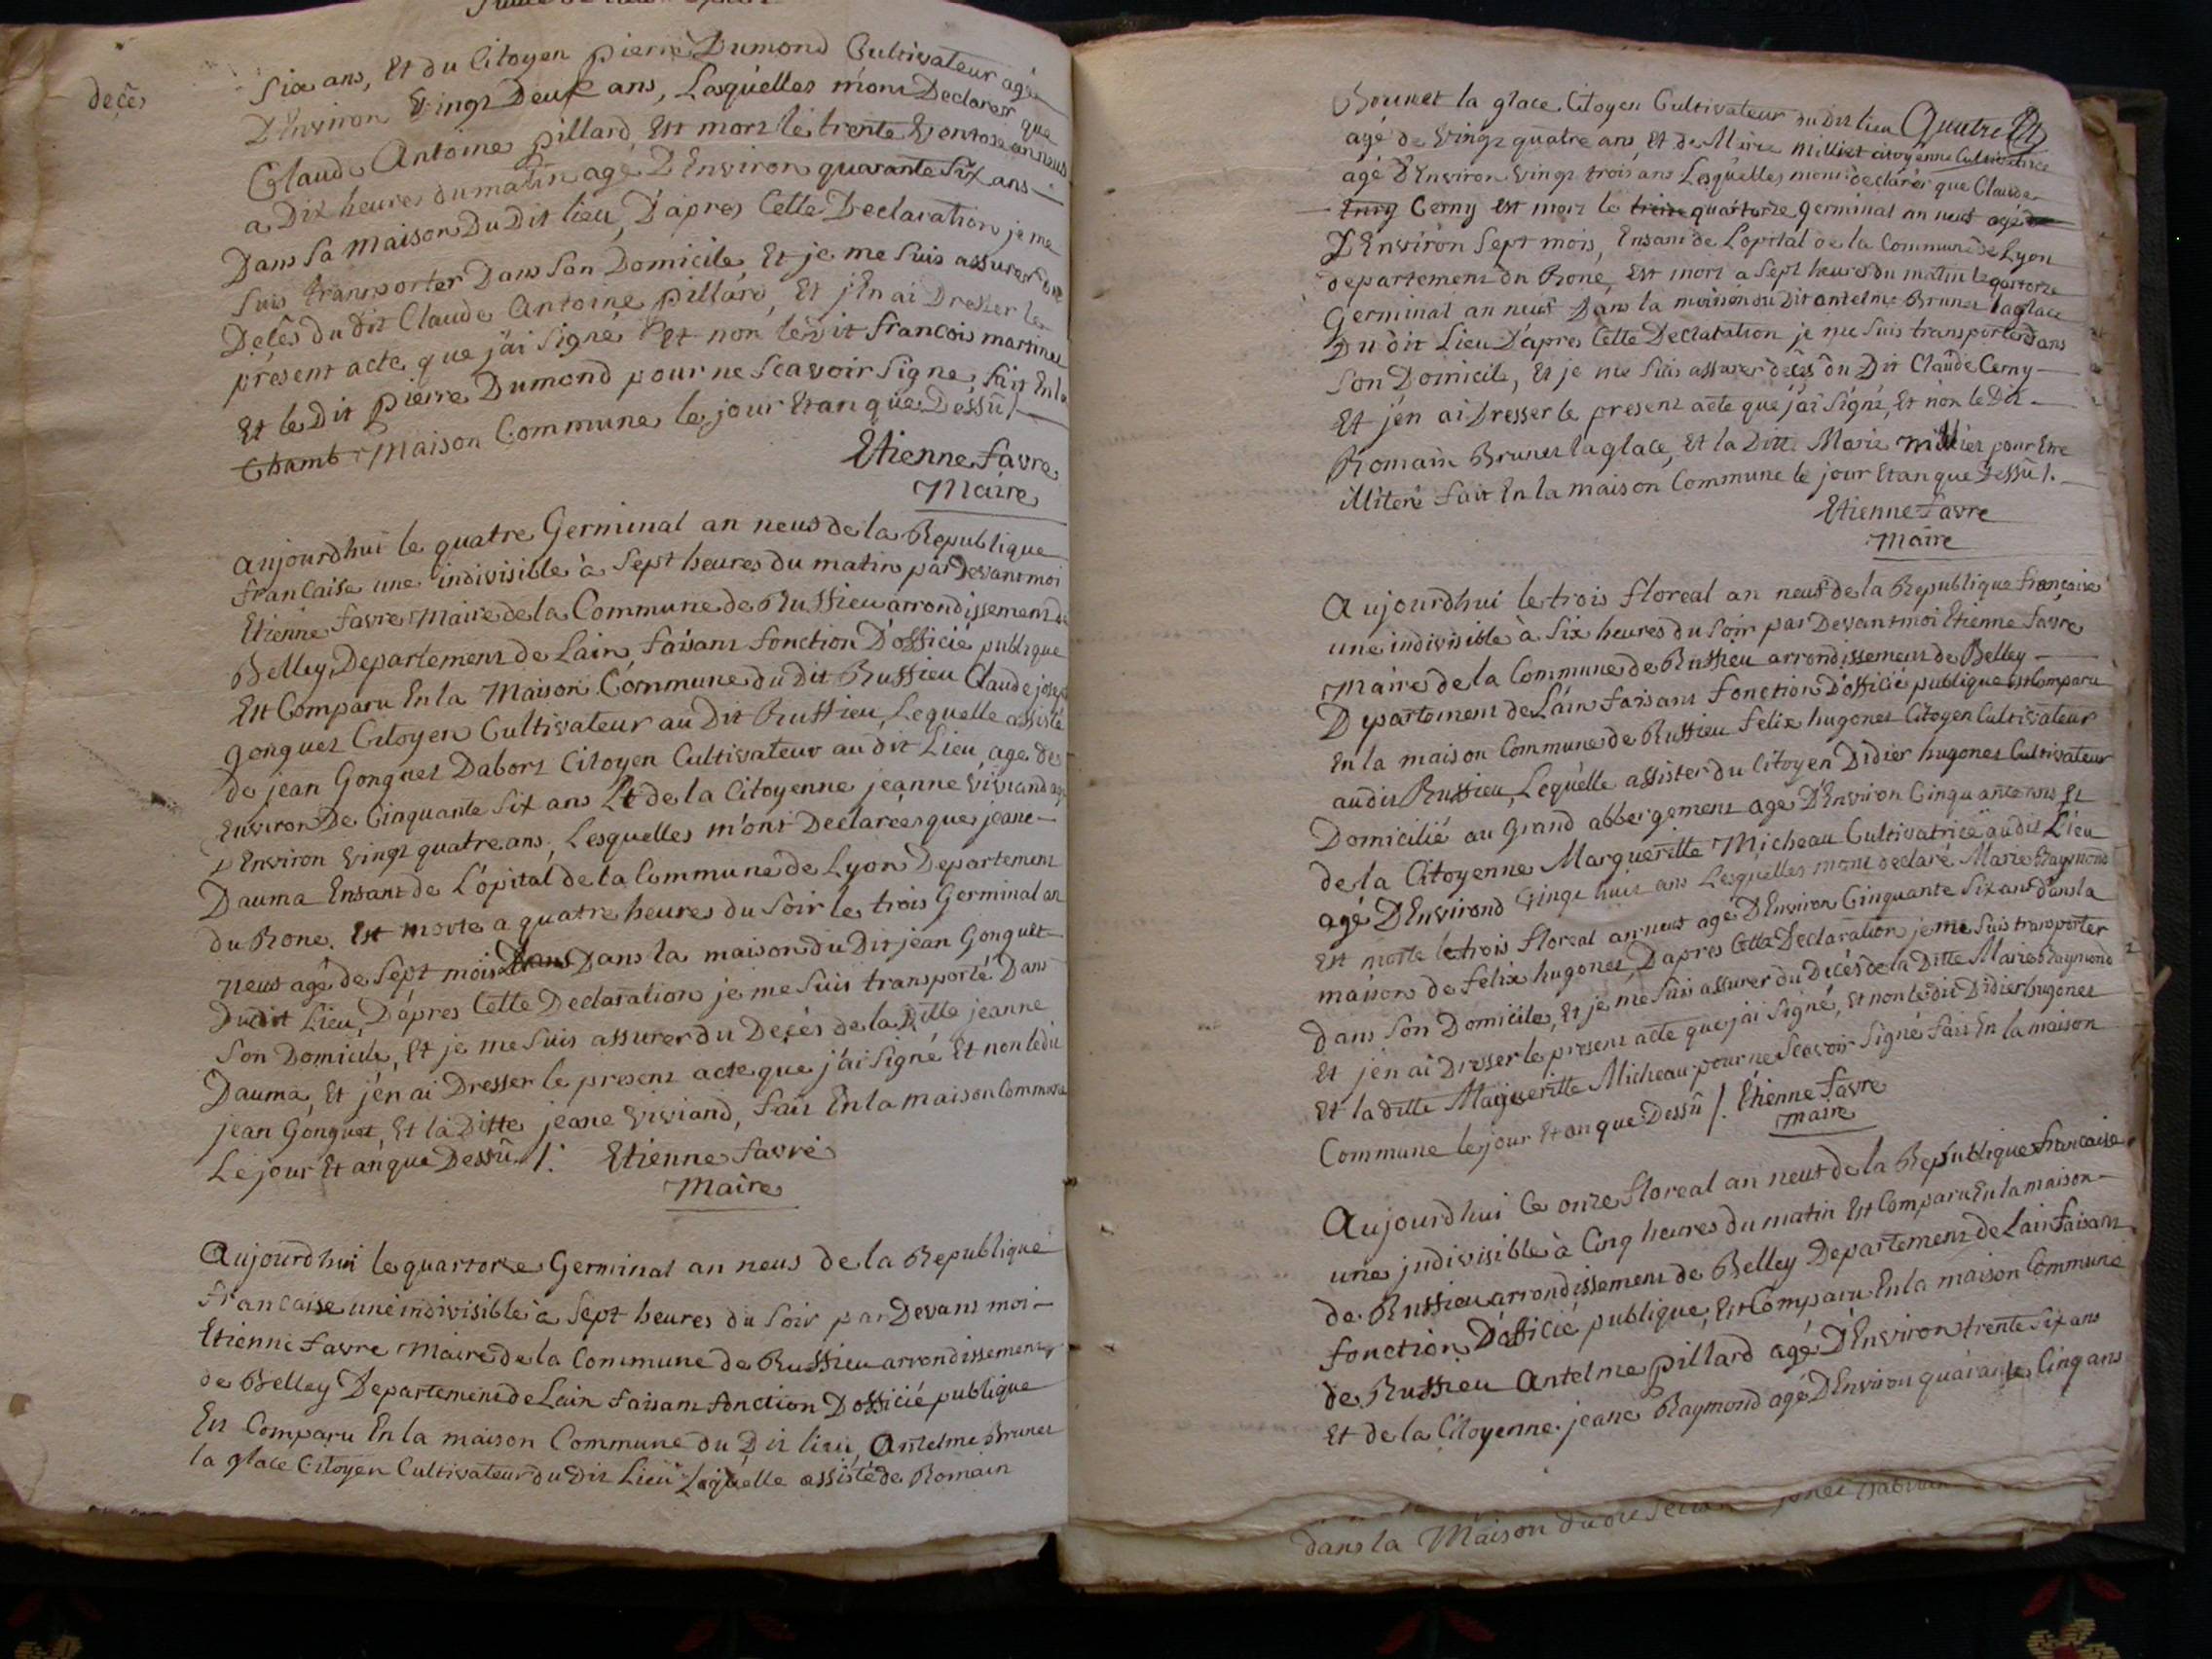 decès
Six ans, Et du Citoyen pierre Dumond Cultivateur agé
D'Environ Vingt Deux ans, Lesquelles m'ont Declarer que
Claude Antoine pillard Est mort le trente Ventose an neuf
a Dix heures du matin agé D'Environ quarante Six ans -
Dans Sa Maison Du Dit lieu, D'apres Cette Declaration je me
Suis transporter Dans Son Domicile Et je me Suis assurer du
Decès du dit Claude Antoine pillard, Et j'En ai Dresser le
présent acte que j'ai Signé Et non le dit francois martinet
Et le Dit pierre Dumond pour ne Scavoir Signe, fait En la
Chamb Maison Commune le jour Et an que Dessû /.
Etienne favre
Maire
aujourdhui le quatre Germinal an neuf de la Republique
francaise une indivisible à Sept heures du matin par Devant moi
Etienne favre Maire de la Commune de Ruffieu arrondissement de
Belley, Departement de Lain, faisant fonction D'officié publique
Est Comparu En la Maison Commune du Dit Ruffieu Claude joseph
Gonguet Citoyen Cultivateur au Dit Ruffieu, Lequelle assisté
de jean Gonguet Dabort Citoyen Cultivateur au dit Lieu, age de
Environ De Cinquante Six ans Et de la Citoyenne jeanne Viviand agé
D'Environ Vingt quatre ans, Lesquelles m'ont Declarées que jeane -
Dauma Enfant de L'opital de la Commune de Lyon Departement
du Rone. Est morte a quatre heures du Soir le trois Germinal an
neuf agé de Sept mois Dans Dans la maison du Dit jean Gonguet
Dudit Lieu, D'apres Cette Declaration je me Suis transporté Dans
Son Domicile, Et je me Suis assurer du Decès de la Ditte jeanne
Dauma, Et j'en ai Dresser le present acte que j'ai Signé Et non le dit
jean Gonguet, Et la Ditte jeane Viviand, fait En la maison Commune
Le jour Et an que Dessû /. Etienne favre
Maire
Aujourdhui le quartorze Germinal an neuf de la Republique
francaise une indivisible à Sept heures du Soir par Devant moi -
Etienne favre Maire de la Commune de Ruffieu arrondissement
de Belley Departement de Lain faisant fonction D'officié publique
Est Comparu En la maison Commune du Dit lieu, Antelme Brunet
la glace Citoyen Cultivateur du Dit Lieu Laquelle assisté de Romain
Brunet la glace Citoyen Cultivateur du Dit lieu Quatre
agé de Vingt quatre ans, Et de Marie Milliet citoyenne Cultivatrice
agé D'Environ Vingt trois ans Lesquelles mont declarér que Claude
Cerny est mort le treize quartorze germinal an neuf agé de
D'Environ Sept mois, Enfant de Lopital de la Commune de Lyon
departement du Rone, Est mort a Sept heures du matin le quartorze
Germinal an neuf Dans la maison du Dit antelme Brunet laglace
Du dit Lieu D'apres Cette Declaration je me Suis transporter dans
Son Domicile, Et je me Suis assurer decès du Dit Claude Cerny -
Et j'en ai Dresser le present acte que j'ai Signé, Et non le Dit -
Romain Brunet la glace, Et la Ditte Marie Milliet pour Etre
illiteré fait En la maison Commune le jour Et an que Dessû /.
Etienne favre
Maire
Aujourdhui le trois floreal an neuf de la Republique francaise
une indivisible à Six heures du Soir par Devant moi Etienne favre
Maire de la Commune de Ruffieu arrondissement de Belley -
Departement de Lain faisant fonction D'officié publique Est Comparu
En la maison Commune de Ruffieu felix hugonet Citoyen Cultivateur
au dit Ruffieu, Lequelle assister du Citoyen Didier hugonet Cultivateur
Domicilié au Grand abbergement age D'Environ Cinquante ans Et
de la Citoyenne Margueritte Micheau Cultivatrice au dit Lieu
agé D'Environd Vingt huit ans Lesquelles mont declaré Marie Raymond
Est morte le trois floreal an neuf agé D'Environ Cinquante Six ans dans la
maison de felix hugonet, D'apres Cette Declaration je me Suis transporter
dans Son Domicile, Et je me Suis assurer du Decès de la Ditte Marie Raymond
Et j'en ai Dresser le present acte que j'ai Signé, Et non le dit Didier hugonet
Et la ditte Margueritte Micheau pour ne Scavoir Signé fait En la maison
Commune le jour Et an que Dessû /. Etienne favre
maire
Aujourdhui le onze floreal an neuf de la Republique francaise
une indivisible à Cinq heures du matin Est Comparu En la maison -
de Ruffieu arrondissement de Belley Departement de Lain faisant
fonction D'officié publique, Est Comparu En la maison Commune
de Ruffieu Antelme pillard agé D'Environ trente Six ans
Et de la Citoyenne jeane Raymond agé D'Environ quarante Cinq ans
dans la Maison du dit